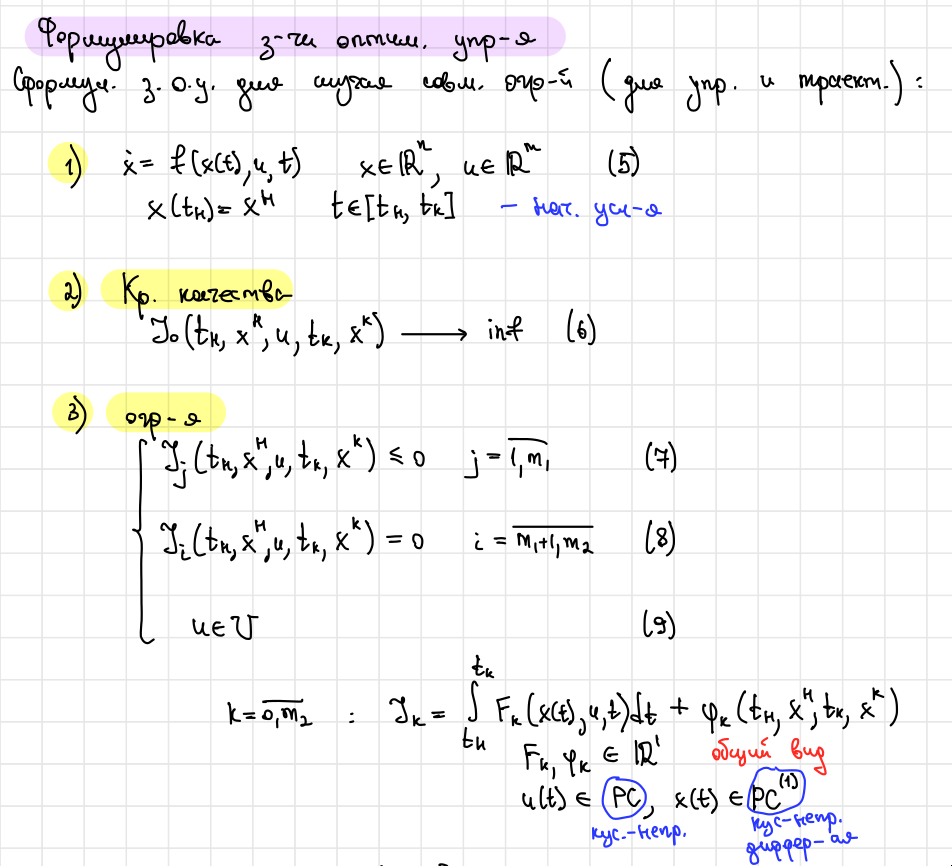 Формулировка з-чи оптим. упр-я
Сформул. з.о.у. для случая совм. огр-й (для упр. и траект.):
1) ẋ = f(x(t), u, t) x ∈ ℝⁿ, u ∈ ℝᵐ (5)
x(tн) = xᴴ t ∈ [tн, tк] - нач. усл-я
2) Кр. качества
J₀(tн, xᴴ, u, tк, xᴷ) ⟶ inf (6)
3) огр-я
Jⱼ(tн, xᴴ, u, tк, xᴷ) ≤ 0 j = \overline{1, m₁} (7)
Jᵢ(tн, xᴴ, u, tк, xᴷ) = 0 i = \overline{m₁+1, m₂} (8)
u ∈ U (9)
k = \overline{0, m₂} : Jₖ = ∫_{tн}^{tк} Fₖ(x(t), u, t)dt + φₖ(tн, xᴴ, tк, xᴷ)
Fₖ, φₖ ∈ ℝ¹ общий вид
u(t) ∈ PC, x(t) ∈ PC⁽¹⁾
кус.-непр. кус-непр.
диффер-ая